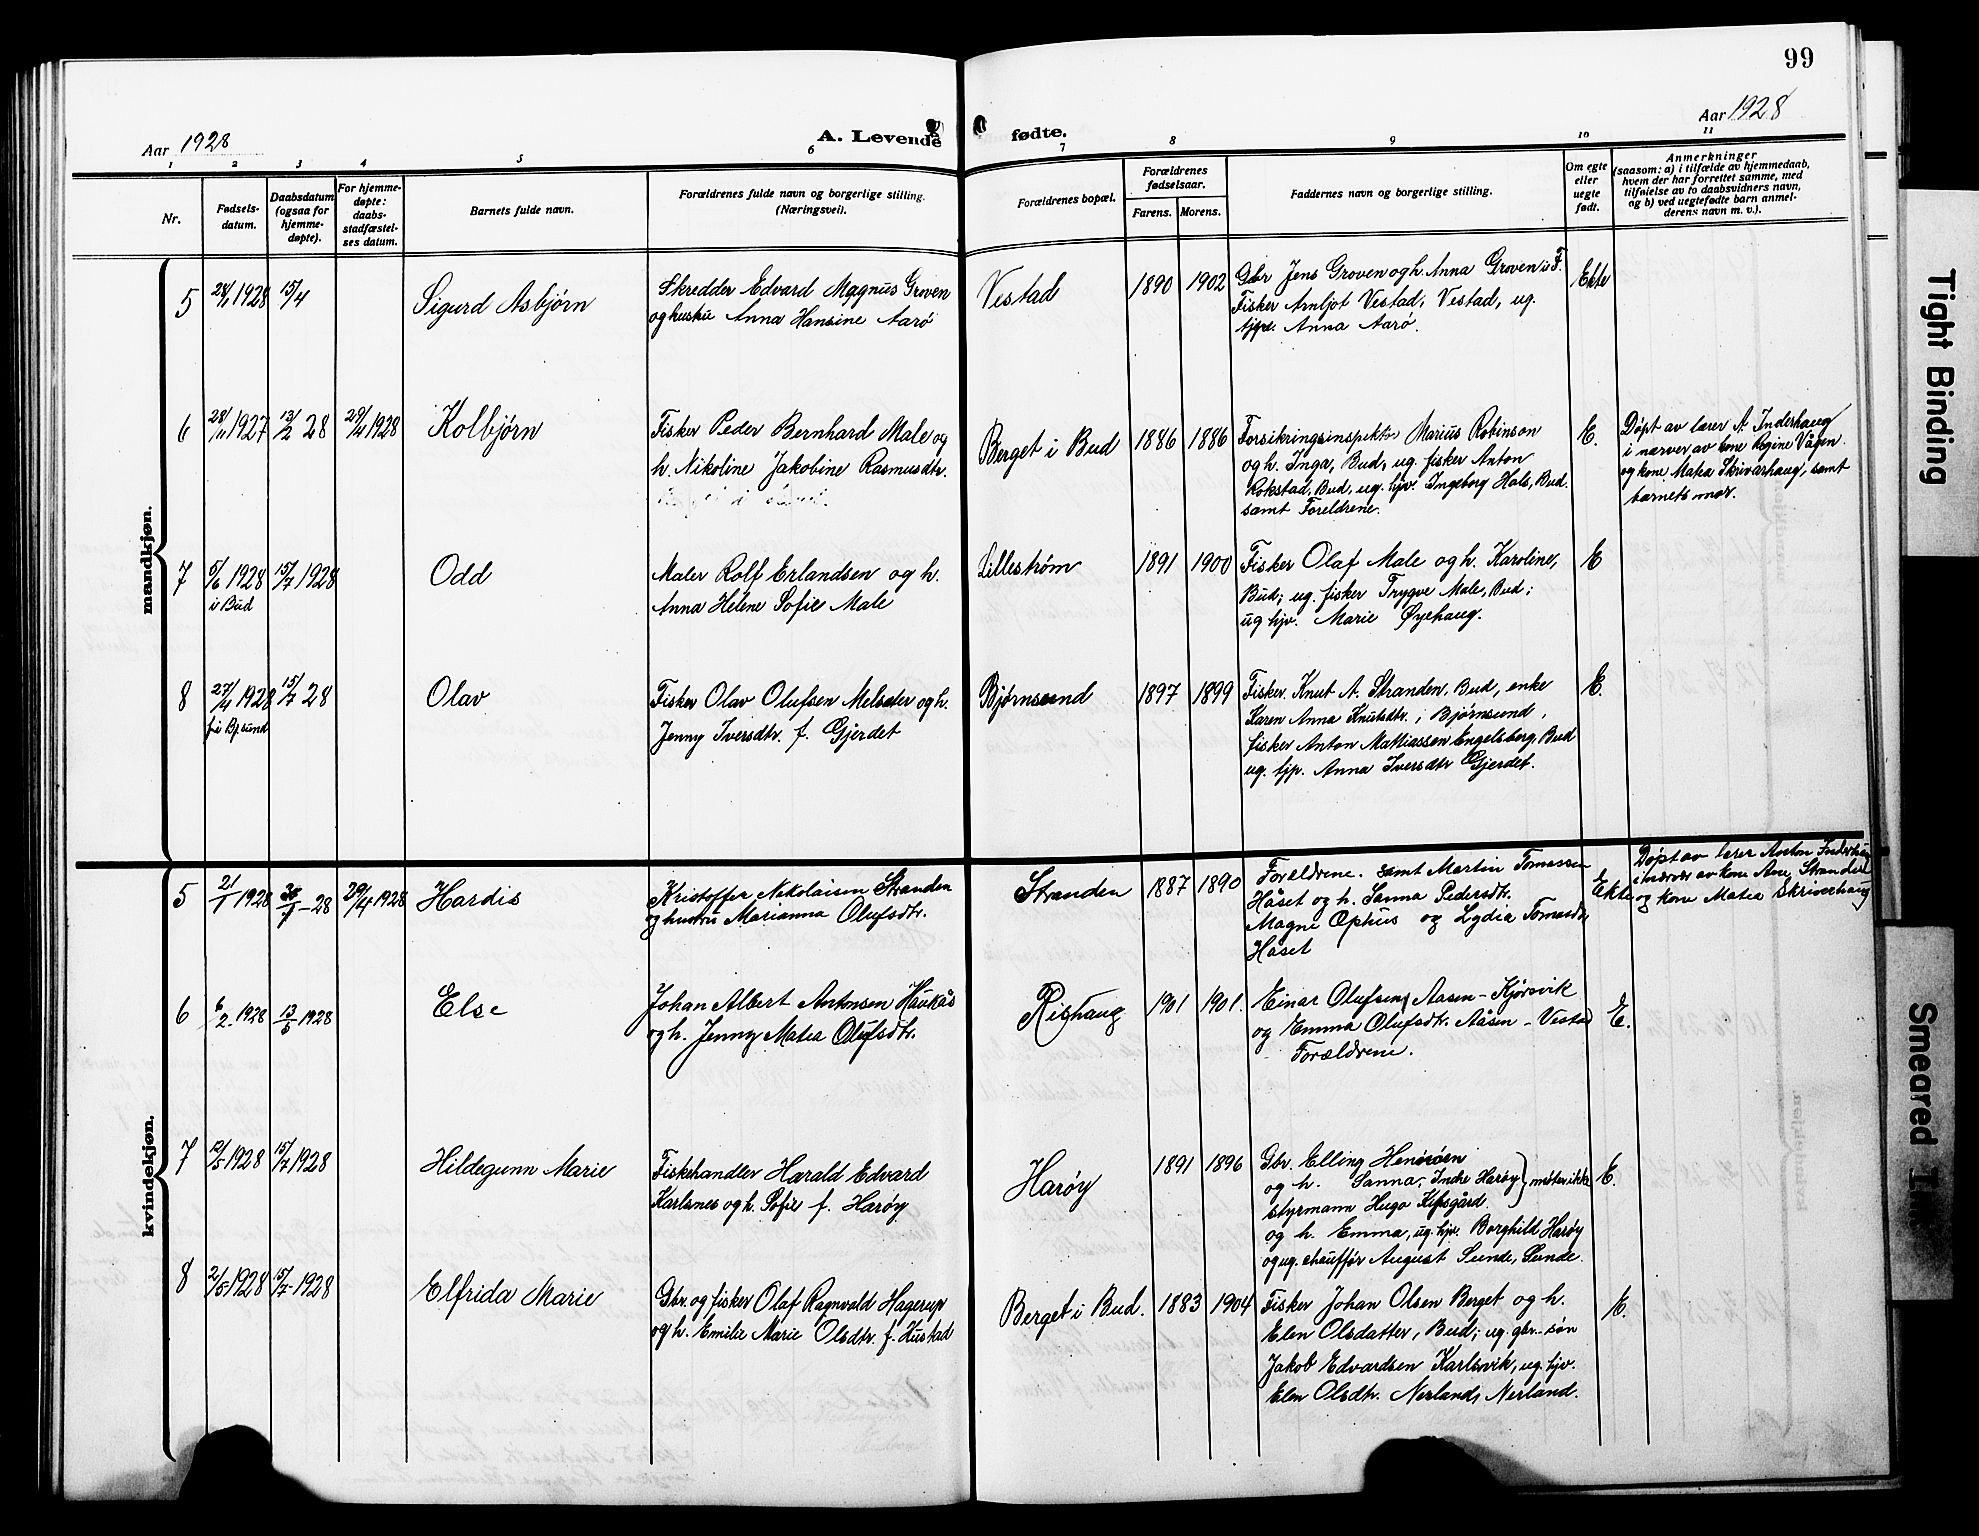 99
Aar 1928
A. Levende fødte.
Aar 1928
1 2 3 4 5 6 7 8 9 10 11
Nr.
Fødsels-
datum.
Daabsdatum
(ogsaa for
hjemme-
døpte).
For hjemme-
døpte:
daabs-
stadfæstel-
ses datum.
Barnets fulde navn.
Forældrenes fulde navn og borgerlige stilling.
(Næringsvei).
Forældrenes bopæl.
Forældrenes
fødselsaar.
Farens. Morens.
Faddernes navn og borgerlige stilling.
Om egte
eller
uegte
født.
Anmerkninger
(saasom: a) i tilfælde av hjemmedaab,
hvem der har forrettet samme, med
tilføielse av to daabsvidners navn,
og b) ved uegtefødte barn anmel-
derens navn m. v.).
mandkjøn.
5 1928 15/4
Sigurd Asbjørn
Skredder Edvard Magnus Groven
og hustru Anna Hansine Aarø
Vestad
1890 1902
Gbr Jens Groven og h. Anna Groven i F.
Fisker Arnljot Vestad, Vestad, ug.
tjpe. Anna Aarø.
Ekte
6 28/11 1927 13/2 28 29/4 1928
Kolbjørn
Fisker Peder Bernhard Male og
h. Nikoline Jakobine Rasmusdtr.
Berget i Bud
1886 1886
Forsikringsinspektr Marius Robinson
og h. Inga, Bud, ug. fisker Anton
Rokstad, Bud, ug. hjv. Ingeborg Hals, Bud.
samt Foreldrene.
E.
Døpt av lærer A. Inderhaug
i nærver av kone Regine Vågen
og kone Matea Skriverhaug, samt
barnets mor.
7 5/6 1928 15/7 1928
i Bud
Odd
Maler Rolf Erlandsen og h.
Anna Helene Sofie Male
Lillestrøm
1891 1900
Fisker Olaf Male og h. Karoline,
Bud; ug. fisker Trygve Male, Bud;
ug hjv. Marie Øyehaug.
E
8 27/4 1928 15/7 28
i Bj.sund
Olav
Fisker Olav Olufsen Melsæter og h.
Jenny Iversdtr. f. Gjerdet
Bjørnsund
1897 1899
Fisker Knut A. Stranden, Bud, enke
Karen Anna Knutsdtr. i Bjørnsund,
fisker Anton Mathiassen Engelsberg, Bud
ug. tjp. Anna Iversdtr Gjerdet.
E.
kvindekjøn.
5 21/1 1928 28 29/4 1928
Hardis
Kristoffer Nikolaisen Stranden
og hustru Marianna Olufsdtr.
Stranden
1887 1890
Forældrene. samt Martin Tomassen
Håset og h. Sanna Pedersdtr.
Magne Ophus og Lydia Tomasdtr
Håset
Ekte
Døpt av lærer Anton Inderhaug
i nærvær av kone Ane Stranden
og kone Matea Skriverhaug
6 6/2 1928 13/5 1928
Else
Johan Albert Antonsen Haukås
og h. Jenny Matea Olufsdtr.
Rishaug
1901 1901.
Einar Olufsen Aasen - Kjørsvik
og Emma Olufsdtr. Aåsen - Vestad
Forældrene.
E.
7 12/5 1928 15/7 1928
Hildegunn Marie
Fiskehandler Harald Edvard
Karlsnes og h. Sofie f. Harøy
Harøy
1891 1896
Gbr. Elling
og h. Sanna, Indre Harøy } møter ikke
styrmann Hugo
og h. Emma, ug. hjv. Borghild Harøy
og ug. chauffør August Sunde, Sunde.
E.
8 2/5 1928 15/7 1928
Elfrida Marie
Gbr. og fisker Olaf Ragnvald Hagerup
og h. Emilie Marie Olsdtr. f. Hustad
Berget i Bud.
1883 1904
Fisker Johan Olsen Berget og h.
Elen Olsdatter, Bud; ug. gbr.- søn
Jakob Edvardsen Karlsvik, ug. hjv.
Elen Olsdtr. Nerland, Nerland.
E.
Tight Binding
Smeared